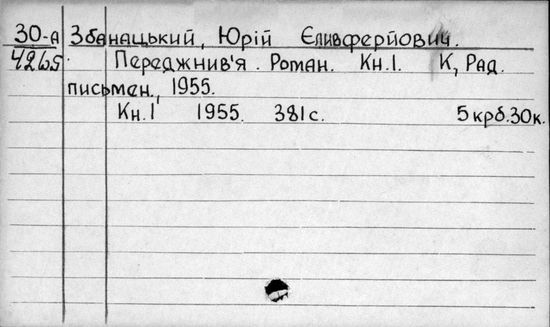 30-А Збанацький, Юрій Єливферйович.
42651 Переджнив'я. Роман. Кн.1. К, Рад.
письмен., 1955.
Кн.1 1955. 381с. 5 крб.30к.